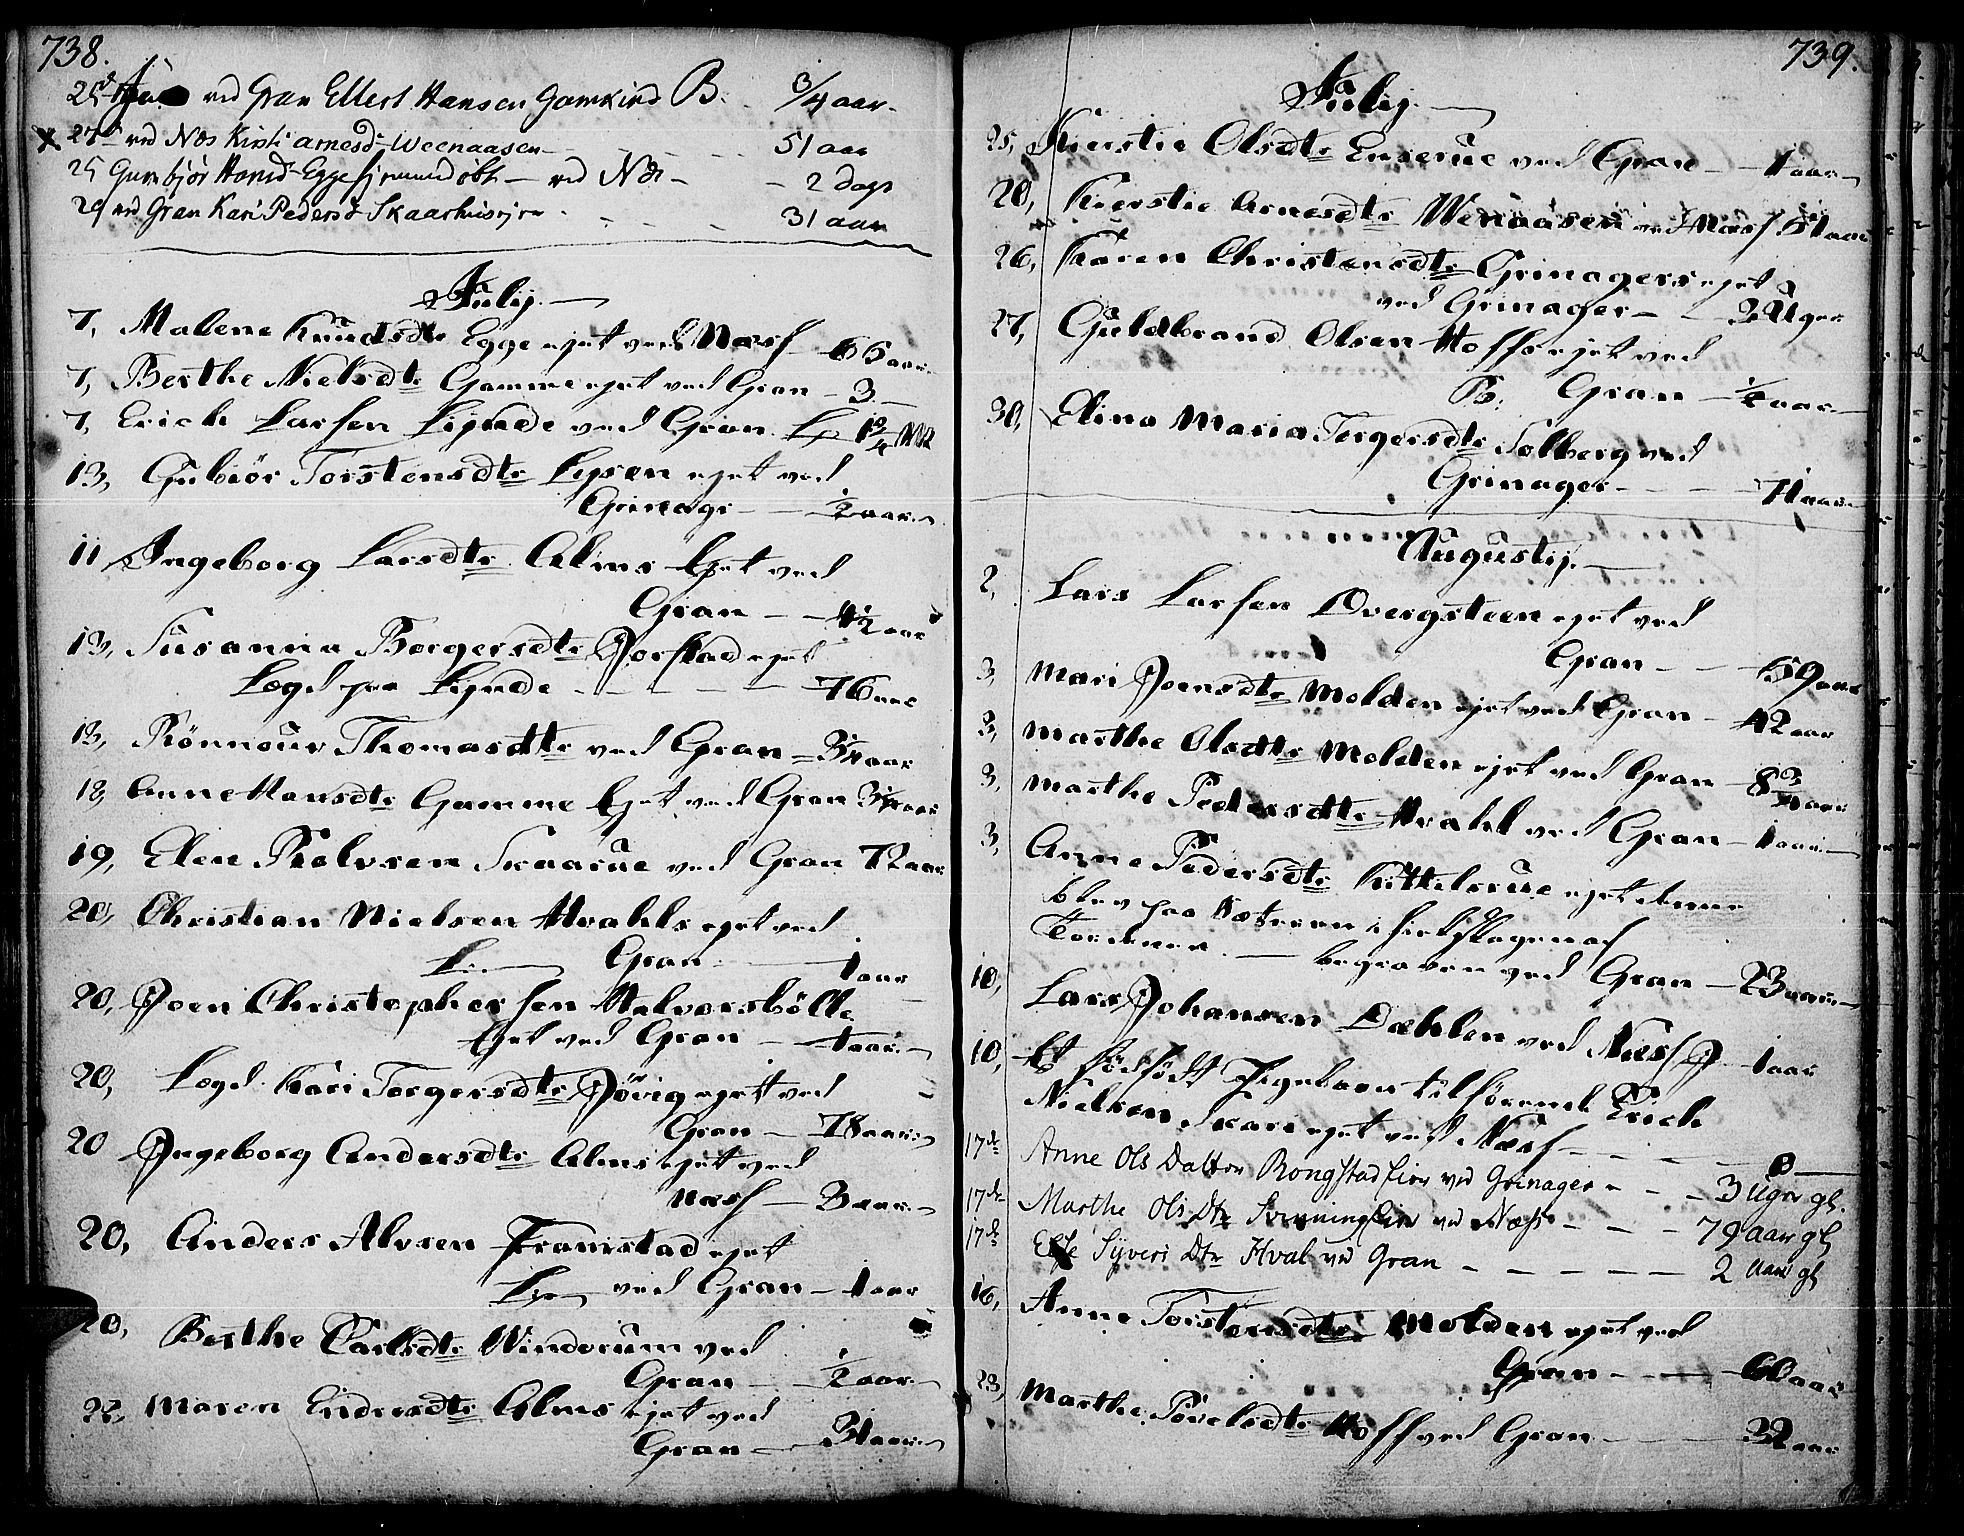 738.
25 ved Gran Ellert Hansen Gamkind B. 3/4 aar.
x 27 ved Næs Kirsti arnesd: Weenaasen 51 aar
25 Gunbjør Hansd Egge hjemmedøbt ved Næs 2 dage
29 ved Gran Kari Pedersd Skaarhus 31 aar
Julij.
7, Malene Knudsdtr Egge ejet ved Næss 66 aar.
7, Berthe Nielsdtr Gamme ejet ved Gran 3.
7, Erich Larsen Lynde ved Gran
13, Gubiør Torstensdtr Lysen ejet ved
Grinager 1/2 aar.
11 Ingeborg Larsdtr Alms Ejet ved
Gran 4 1/2 aar
13, Susanna Borgersdtr Jorstad ejet
Legd paa Lynde 76 aar
13, Rønnour Thomasdtr ved Gran 3/4 aar
18, Anne Hansdtr Gamme Ejet ved Gran 3/4 aar
19, Elen Skaarue ved Gran 72 aar
20, Christian Nielsen Hvahls ejet ved
Gran 1 aar
20, Joen Christophersen Halvorsbölle
Ejet ved Gran 1 aar.
20, Legd. Kari Torgersdtr Jövig ejet ved
Gran 78 aar.
20 Ingeborg Andersdtr Alms ejet ved
Næss 3 aar.
20, Anders Alvsen Framstad ejet
ved Gran 1 aar
20, Berthe Carlsdtr Windorum ved
Gran 1/2 aar.
22, Maren Endresdtr Alms ejet ved
Gran 31 aar.
739.
Julij.
25, Kierstie Olsdtr Enserue ved Gran 1 aar
20, Kierstie Arnesdtr Wenaasen ved Næss 51 aar
26, Karen Christensdtr Grinagers ejet
ved Grinager 3 Uger
27, Guldbrand Olsen Hoffs ejet ved
B. Gran 1/2 aar.
30, Elina Maria Torgersdtr Solberg ved
Grinager 71 aar
Augustij.
2, Lars Larsen Dvergsteen ejet ved
Gran 59 aar
3, Mari Joensdtr Molden ejet ved Gran 42 aar
3, Marthe Olsdtr Molden ejet ved Gran 8 3/4 aar
3, Marthe Pedersdtr Hvahl ved Gran 1 aar
3, Anne Pedersdtr Kittelsrue ejet denne
blev paa Sæteren ihielslagen af
Tordenen begraven ved Gran 23 aar
10, Lars Johansen Dæhlen ved Næss 1 aar
10, Et dødfødt Pigebarn tilhørende Erich
Nielsen Skari ejet ved Næss 0
17de Anne Ols Datter Rongstad Eier ved Grinager 3 Uger gl.
17de Marthe Ols Dtr ved Næss 79 aar gl
17de Else Syvers Dtr Hval ved Gran 2 aar gl
16, Anne Torstensdtr Molden ejet ved
Gran 60 aar
23, Marthe Povelsdtr Hoff ved Gran 32 aar